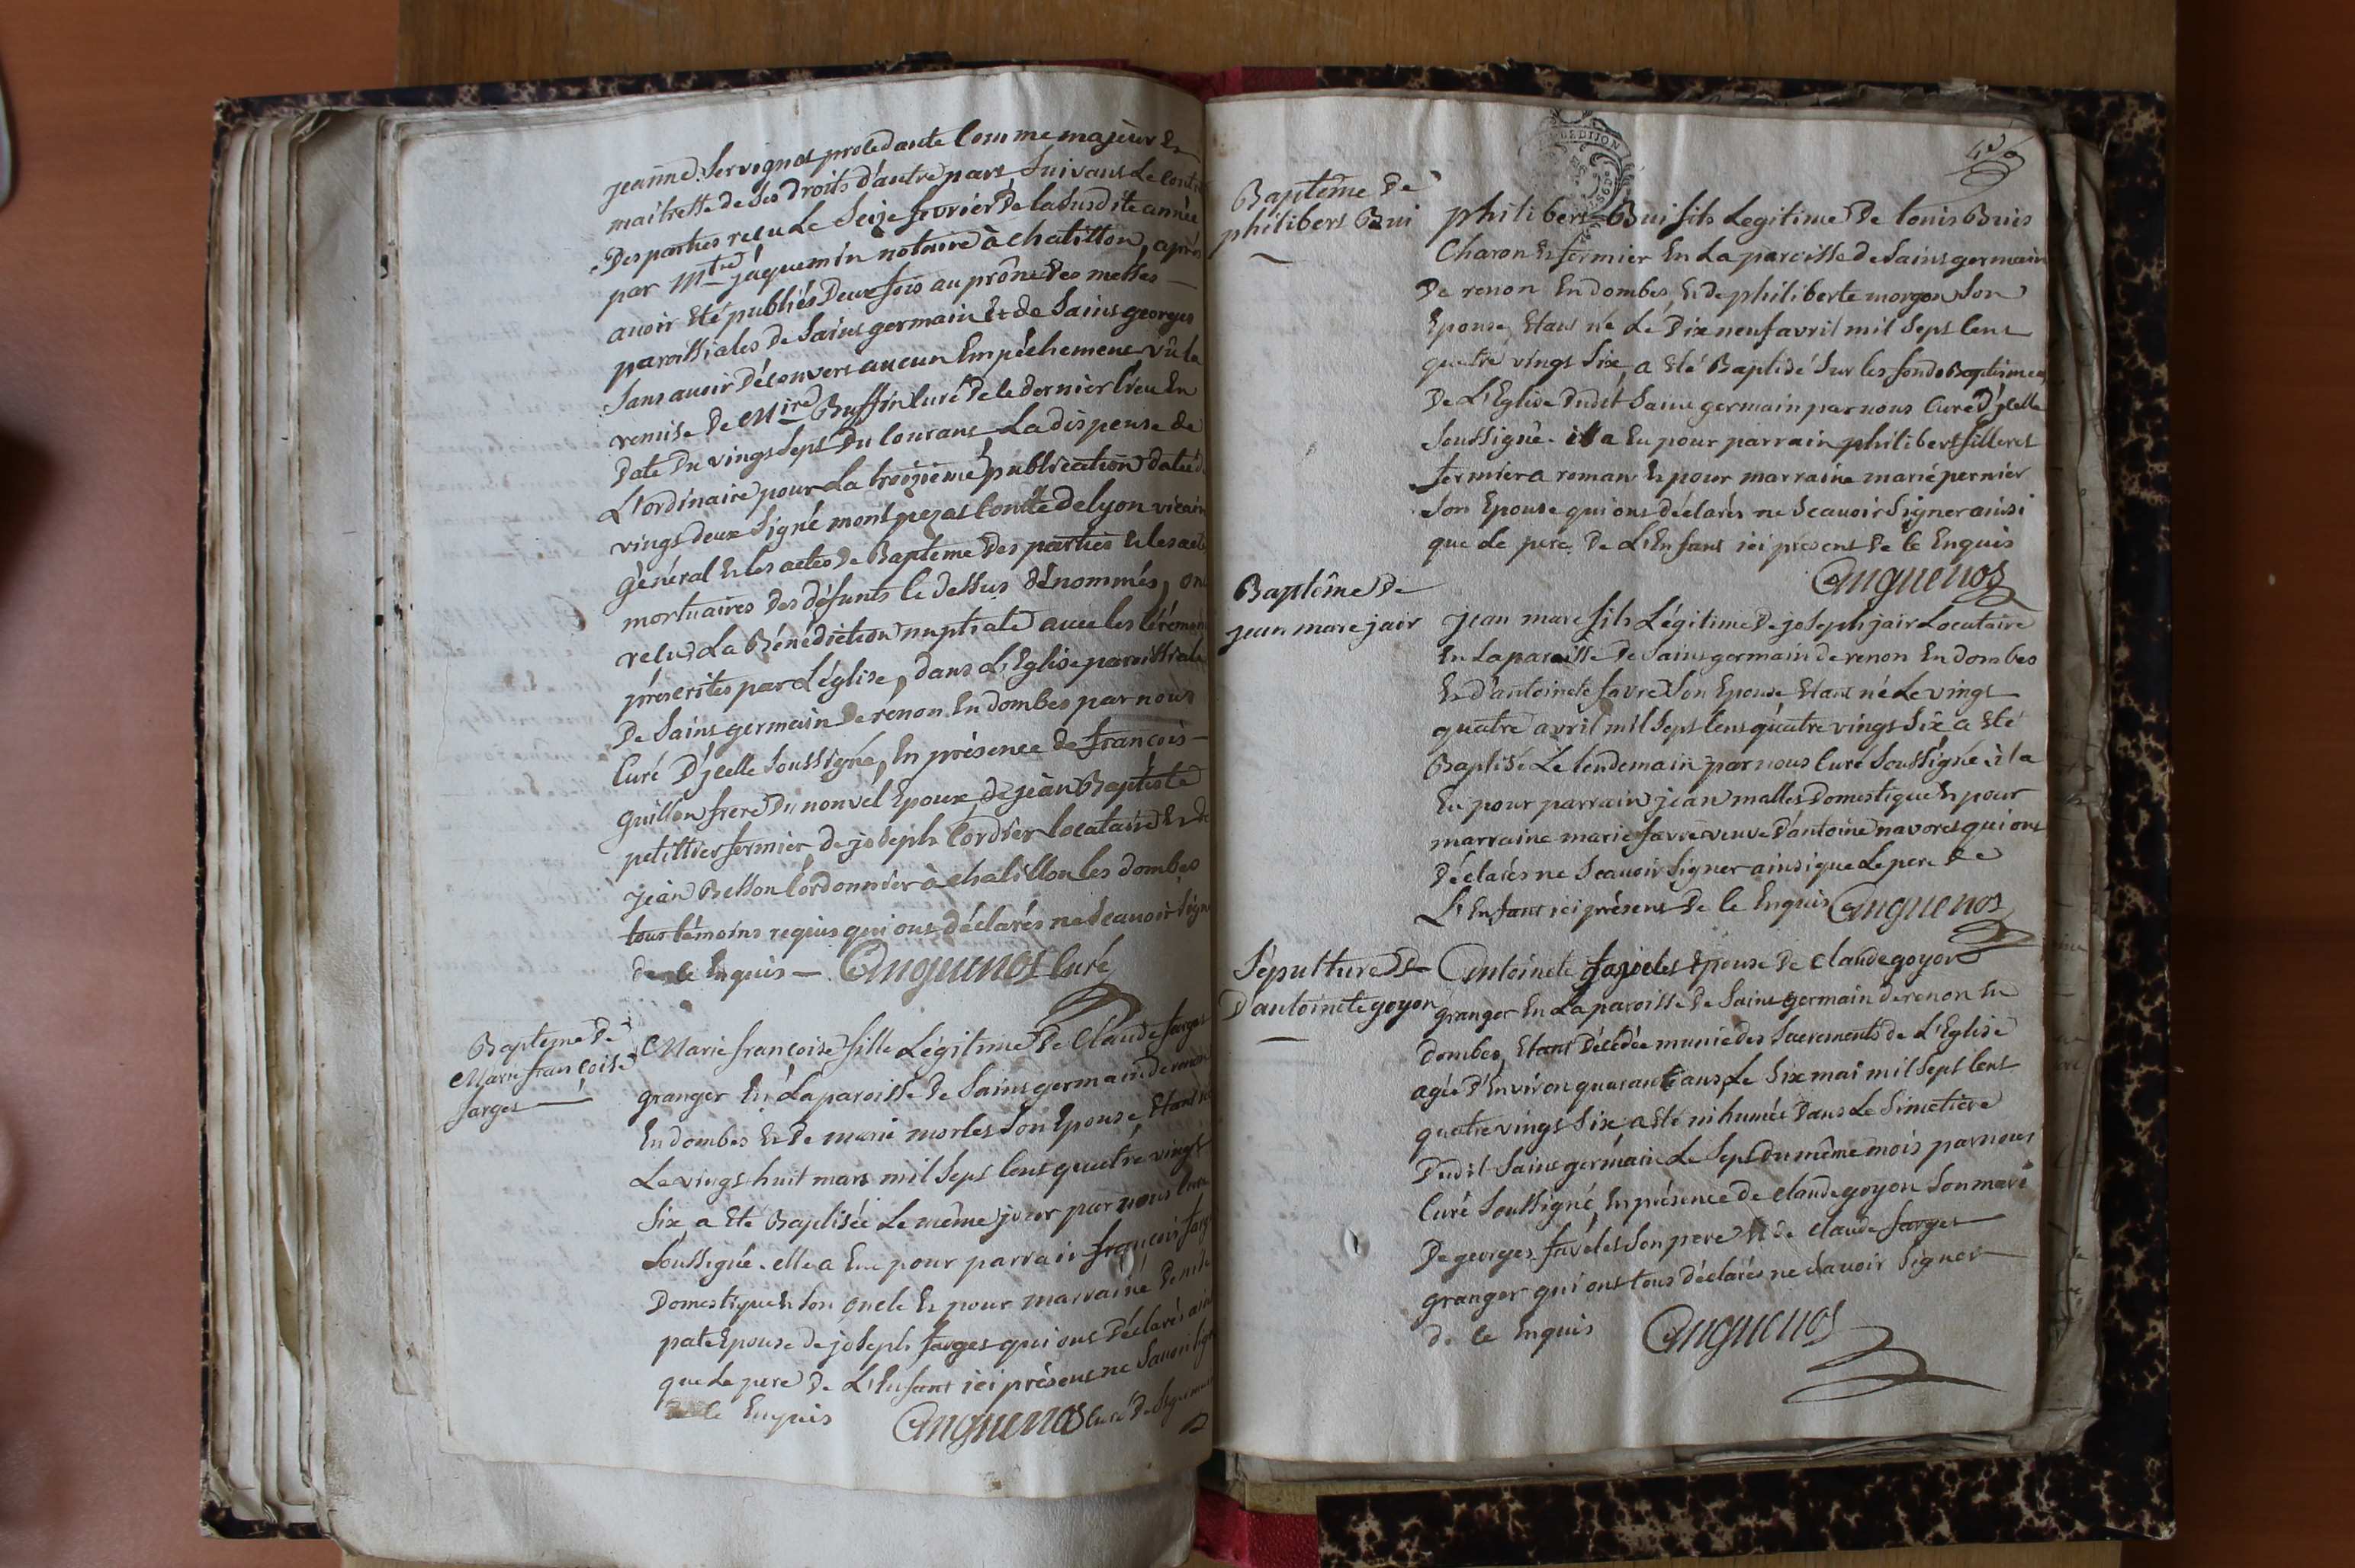 jeanne Servignat procedante Comme majeur Et
maitresse de Ses Droits d'autre part Suivant Le Contr
Des parties recu Le Seize fevrier De la Susdite année
par Mtre jaquemin notaire à chatillon, après
avoir Eté publiés Deux fois au prône Des messes
paroissiales de Saint germain Et de Saint georges
Sans avoir Découvert aucun Empêchement vû la
remise De Mire Buffin Curé De Ce dernier lieu En
Date Du vingt Sept Du Courant, La dispense de
L'ordinaire pour La troisieme publication Datée d
vingt deux Signé montpezat Comte De lyon vicair
général Et les actes de Baptême Des parties Et les act
mortuaires Des défunts Ci dessus dénommés, ont
recus La Bénédiction nuptiale avec les Cérémoni
prescrites par L'église, dans L'Eglise paroissiale
De Saint germain De renon En dombes par nous
Curé D'jcelle Soussigné, En présence de françois
guillon frere Du nouvel Epoux, de jean Baptiste
petittier fermier de joseph Cordier locataire Et de
jean Besson Cordonnier à chatillon les dombes
tous témoins requis qui ont déclarés ne Scavoir Sign
de ce Enquis — Anguenot Curé
Baptême De
Marie francoise
farges
Marie francoise fille Légitime De Claude farges
granger En La paroisse De Saint germain De renon
En dombes Et De marie morles Son Epouse, Etant né
Le vingt huit mars mil Sept Cent quatre vingt
Six a Eté Baptisée Le même jour par nous Curé
Soussigné. elle a Eu pour parrain françois farg
Domestique Et Son oncle Et pour marraine
pate Epouse de joseph farges qui ont Déclarés ain
que Le pere De L'Enfant ici présent ne Savoir Sign
de ce Enquis Anguenot Curé De St germain
DE DIJON
Baptême De
philibert Bui
philibert Bui fils Legitime De louis Buis
Charon Et fermier En La paroisse de Saint germain
De renon En dombes, Et de philiberte morgon Son
Epouse, Etant né Le Dix neuf avril mil Sept Cent
quatre vingt Six, a Eté Baptisé Sur les fonds Baptismeaux
De L'Eglise Dudit Saint germain par nous Curé D'jcelle
Soussigné. il a Eu pour parrain philibert filleret
fermier a roman Et pour marraine marie pernier
Son Epouse qui ont déclarés ne Scavoir Signer ainsi
que Le pere De L'Enfant ici présent De Ce Enquis
Anguenot
Baptême De
jean marc jair
jean marc fils Légitime De joseph jair Locataire
En La paroisse De Saint germain de renon En dombes
Et d'antoinete favre Son Epouse Etant né Le vingt
quatre avril mil Sept Cent quatre vingt Six a Eté
Baptisé Le lendemain par nous Curé Soussigné il a
Eu pour parrain jean malles Domestique Et pour
marraine marie favre veuve D'antoine navoret qui ont
Déclarés ne Scavoir Signer ainsi que Le pere De
L'Enfant ici présent De Ce Enquis Anguenot
Sepulture
D'antoinete goyon
Antoinete Epouse De Claude goyon
granger En La paroisse De Saint germain de renon En
dombes, Etant Décédée munie des Sacrements de L'Eglise
agée D'Environ quarante ans Le Six mai mil Sept Cent
quatre vingt Six a Eté inhumée Dans Le Simetiere
Dudit Saint germain Le Sept Du même mois par nous
Curé Soussigné, En présence De Claude goyon Son mari
De georges Son pere Et de Claude farges
granger qui ont tous déclarés ne Savoir Signer
de Ce Enquis Anguenot